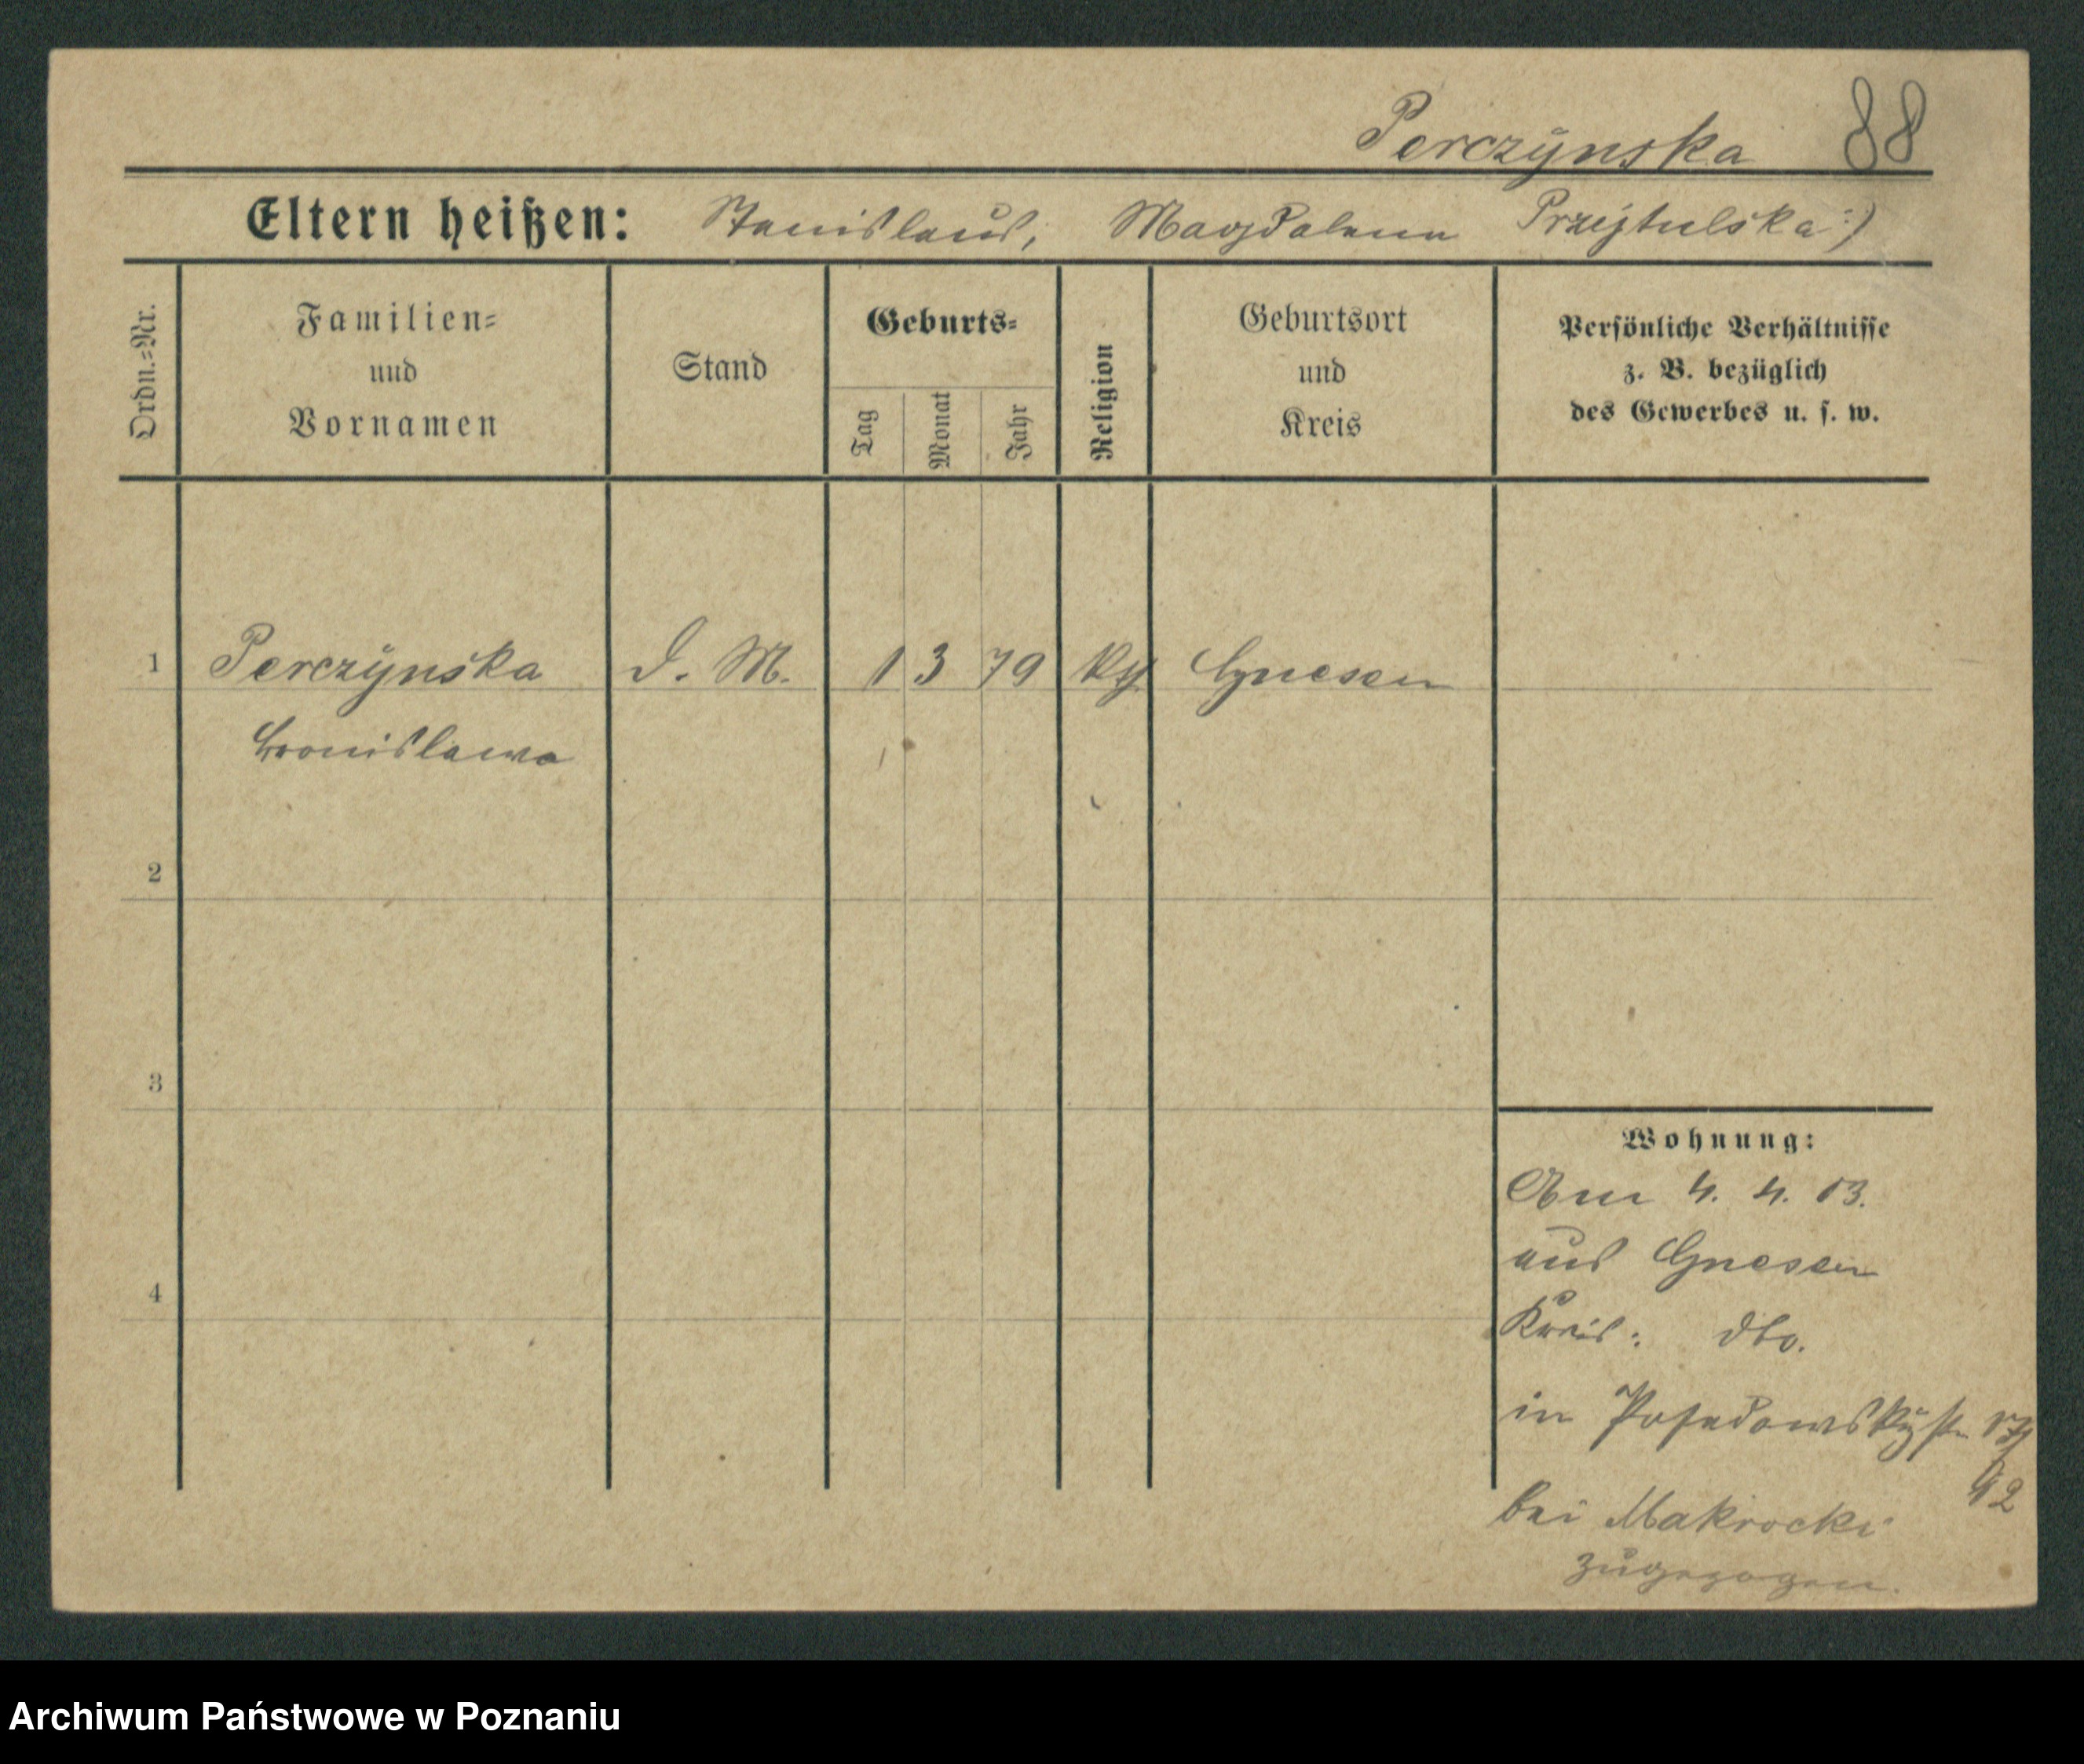 Perczynska 88
Eltern heißen: Stanislaus, Magdalena Przijtulska :)
Ordn.=Nr.
Familien=
und
Vornamen
Stand
Geburts=
Tag
Monat
Jahr
Religion
Geburtsort
und
Kreis
Persönliche Verhältnisse
z. B. bezüglich
des Gewerbes u. s. w.
1 Perczynska D. M. 1 3 79 kth Gnesen
Bronislawa
2
3
4
Wohnung:
Am 4. 4. 03.
aus Gnesen
Kreis: dto.
in Posadowskystr.
bei Makrocki
zugezogen.
Archiwum Państwowe w Poznaniu